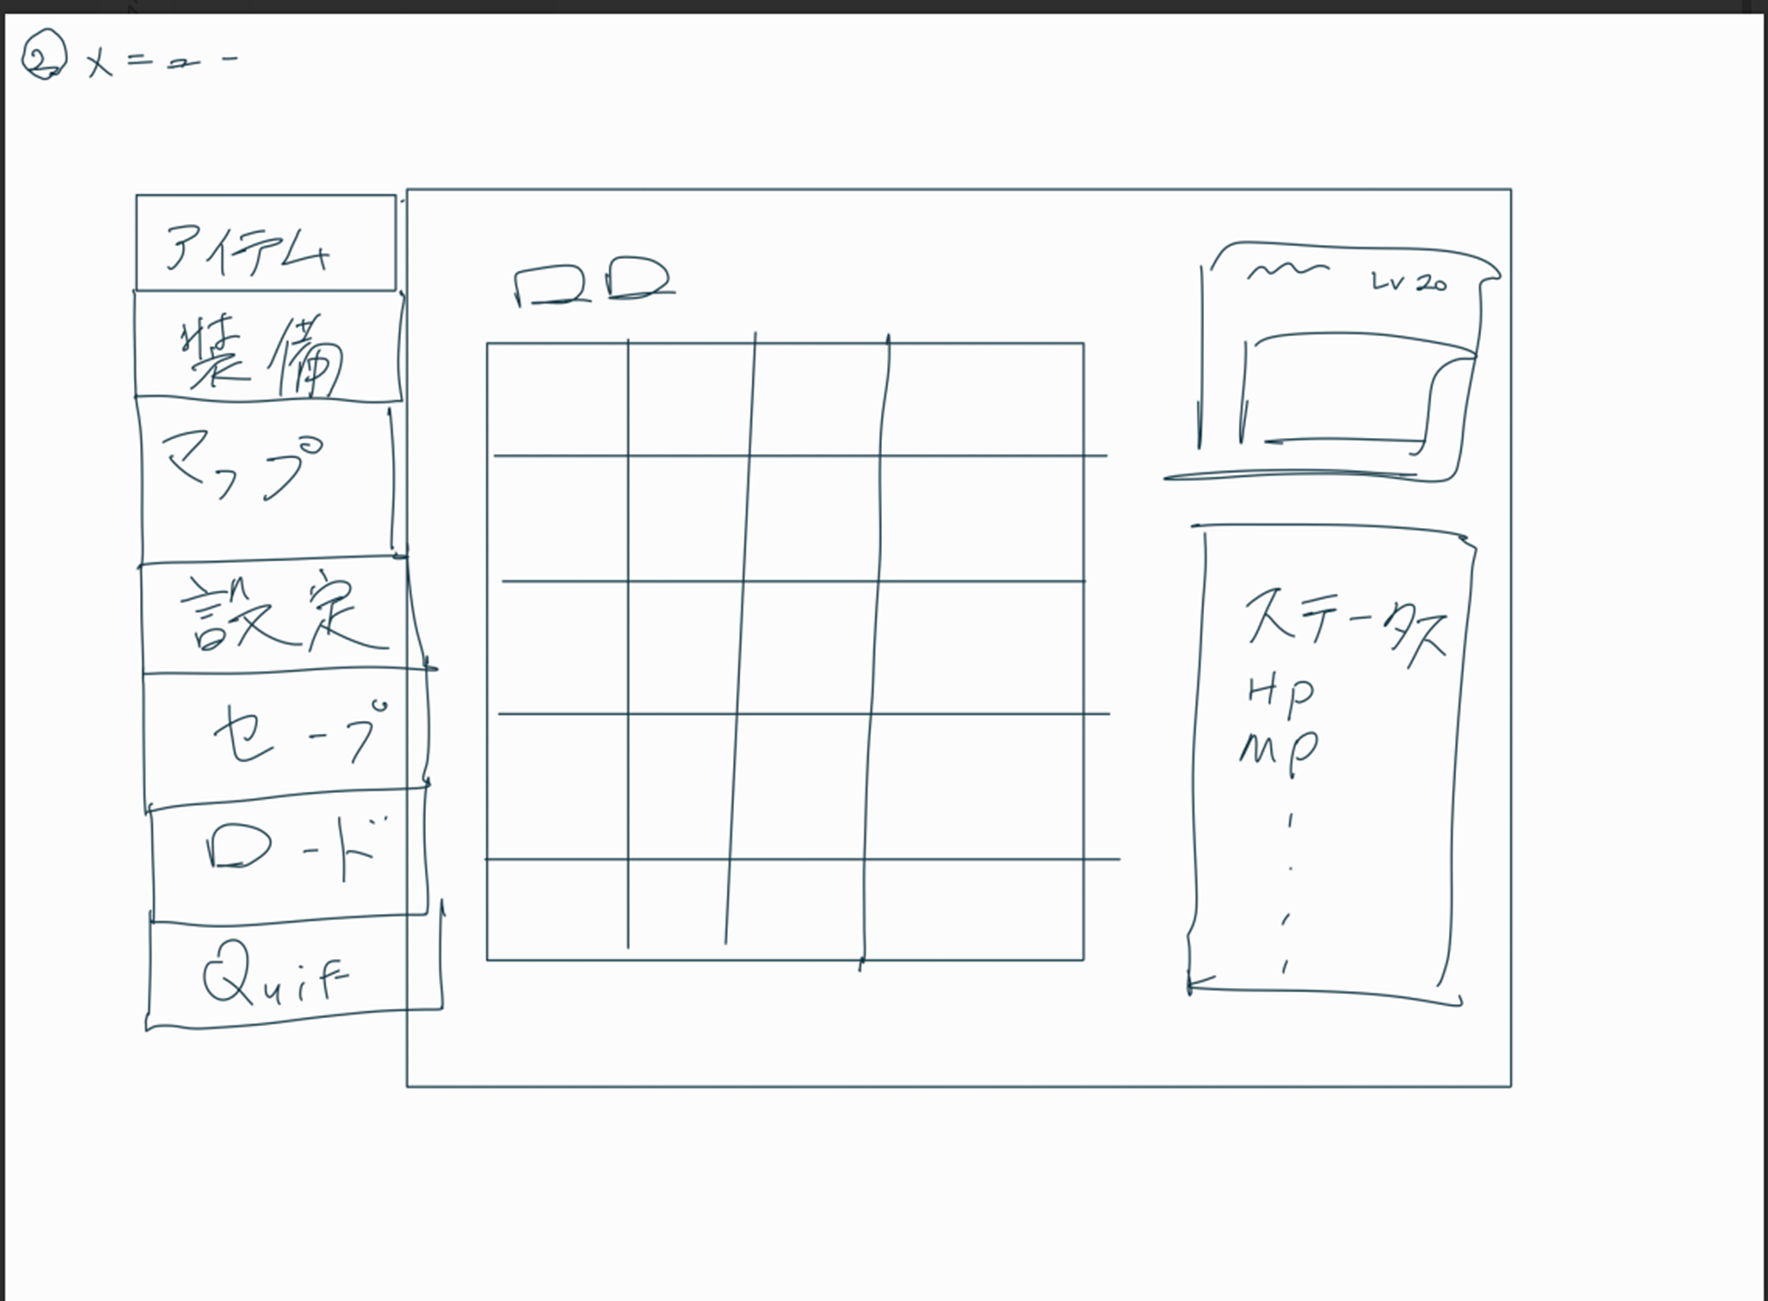 ② メニュー
アイテム
装備
マップ
設定
セーブ
ロード
Quit
Lv 20
ステータス
HP
MP